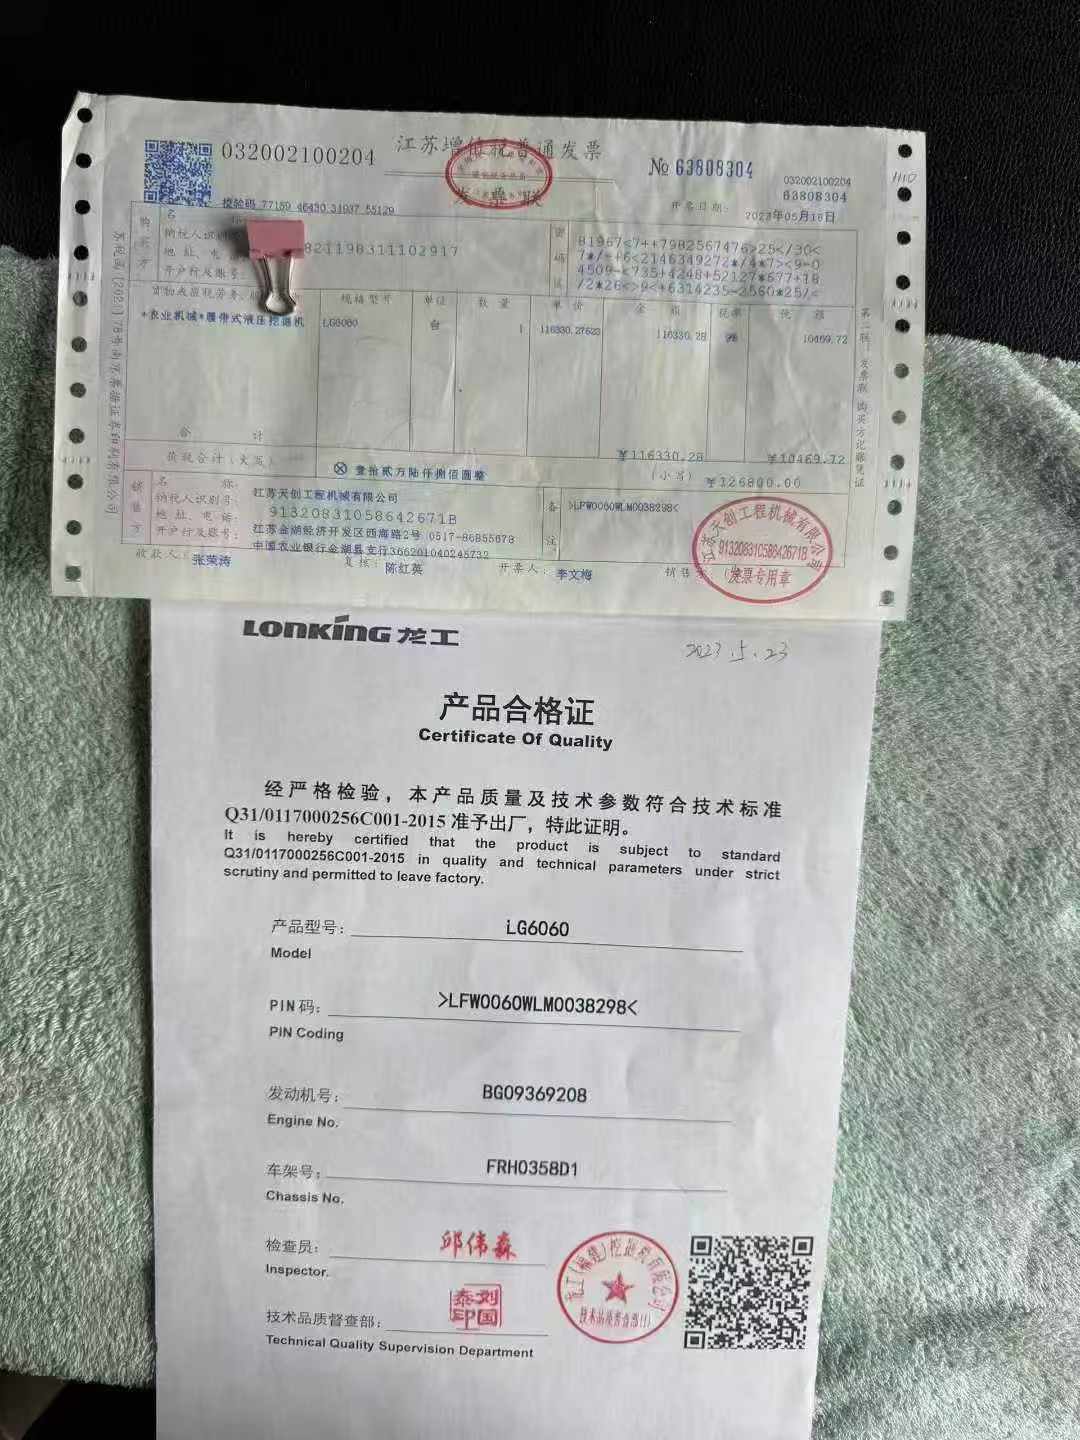 032002100204
江苏增值税普通发票
发票联
№ 63808304
032002100204
63808304
1110
校验码 77159 46430 31937 55129
开票日期: 2023年05月16日
购买方
名 称
纳税人识别
821198311102917
地 址、电
开户行及账号:
密码区
81967<7++7982567476>25</30<
7*/-+6<2146349272*/4*7><9-0
4509-<735+4248+52127*677+18
/2*26<>9<+6314235-2560*25/<
货物或应税劳务、服
规格型号
单位
数 量
单 价
金 额
税率
税 额
*农业机械*履带式液压挖掘机
LG6060
台
1
116330.27523
116330.28
9%
10469.72
合 计
￥116330.28
￥10469.72
价税合计(大写)
ⓧ 壹拾贰万陆仟捌佰圆整
(小写)
￥126800.00
销售方
名 称:
江苏天创工程机械有限公司
纳税人识别号:
91320831058642671B
地 址、电 话:
江苏金湖经济开发区西海路2号 0517-86855678
开户行及账号:
中国农业银行金湖县支行366201040245732
备注
>LFW0060WLM0038298<
收款人:
张荣涛
复核:
陈红英
开票人:
李文梅
销售
江苏天创工程机械有限公司
发票专用章
第二联:发票联 购买方记账凭证
LONKING 龙工
2023.5.23
产品合格证
Certificate Of Quality
经严格检验，本产品质量及技术参数符合技术标准
Q31/0117000256C001-2015 准予出厂，特此证明。
It is hereby certified that the product is subject to standard
Q31/0117000256C001-2015 in quality and technical parameters under strict
scrutiny and permitted to leave factory.
产品型号:
LG6060
Model
PIN 码:
>LFW0060WLM0038298<
PIN Coding
发动机号:
BG09369208
Engine No.
车架号:
FRH0358D1
Chassis No.
检查员:
邱伟森
Inspector.
技术品质督查部:
刘国泰印
Technical Quality Supervision Department
龙工(福建)挖掘机有限公司
技术品质督查部(1)